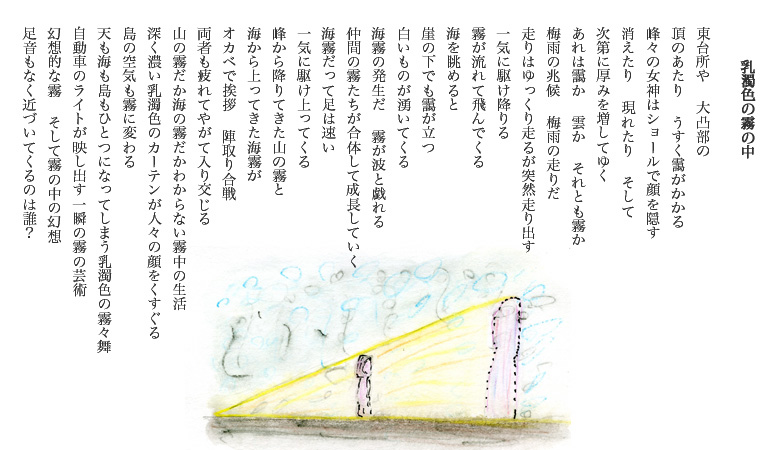 乳濁色の霧の中
東台所や　大凸部の
頂のあたり　うすく靄がかかる
峰々の女神はショールで顔を隠す
消えたり　現れたり　そして
次第に厚みを増してゆく
あれは靄か　雲か　それとも霧か
梅雨の兆候　梅雨の走りだ
走りはゆっくり走るが突然走り出す
一気に駆け降りる
霧が流れて飛んでくる
海を眺めると
崖の下でも靄が立つ
白いものが湧いてくる
海霧の発生だ　霧が波と戯れる
仲間の霧たちが合体して成長していく
海霧だって足は速い
一気に駆け上ってくる
峰から降りてきた山の霧と
海から上ってきた海霧が
オカベで挨拶　陣取り合戦
両者も疲れてやがて入り交じる
山の霧だか海の霧だかわからない霧中の生活
深く濃い乳濁色のカーテンが人々の顔をくすぐる
島の空気も霧に変わる
天も海も島もひとつになってしまう乳濁色の霧々舞
自動車のライトが映し出す一瞬の霧の芸術
幻想的な霧　そして霧の中の幻想
足音もなく近づいてくるのは誰？